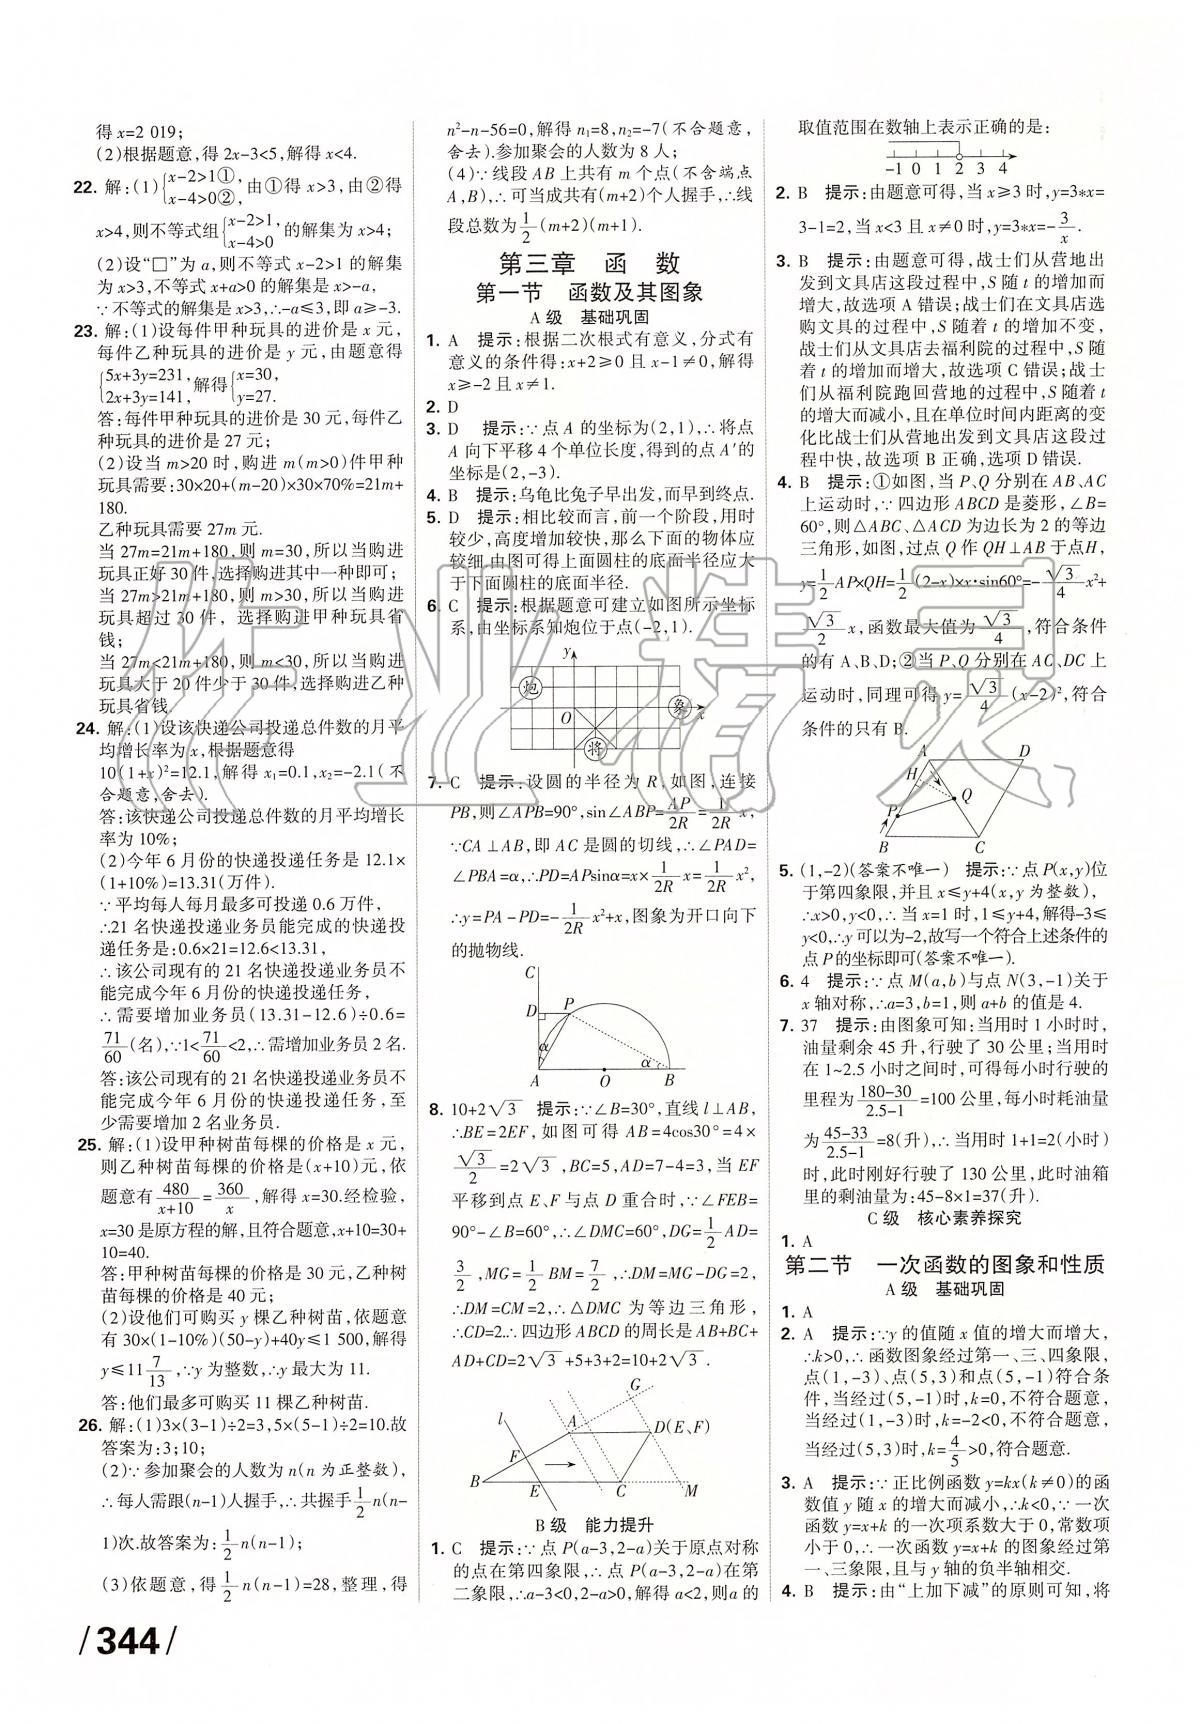 得x=2 019;
(2)根据题意,得2x-3<5,解得x<4.
22. 解:(1){x-2>1①, x-4>0②,由①得x>3,由②得
x>4,则不等式组{x-2>1, x-4>0的解集为x>4;
(2)设“□”为a,则不等式x-2>1的解集
为x>3,不等式x+a>0的解集是x>-a,
∵不等式的解集是x>3,∴-a≤3,即a≥-3.
23. 解:(1)设每件甲种玩具的进价是x元,
每件乙种玩具的进价是y元,由题意得
{5x+3y=231, 2x+3y=141,解得{x=30, y=27.
答:每件甲种玩具的进价是30元,每件乙
种玩具的进价是27元;
(2)设当m>20时,购进m(m>0)件甲种
玩具需要:30×20+(m-20)×30×70%=21m+
180.
乙种玩具需要27m元.
当27m=21m+180,则m=30,所以当购进
玩具正好30件,选择购进其中一种即可;
当27m>21m+180,则m>30,所以当购进
玩具超过30件,选择购进甲种玩具省
钱;
当27m<21m+180,则m<30,所以当购进
玩具大于20件少于30件,选择购进乙种
玩具省钱.
24. 解:(1)设该快递公司投递总件数的月平
均增长率为x,根据题意得
10(1+x)²=12.1,解得x₁=0.1,x₂=-2.1(不
合题意,舍去).
答:该快递公司投递总件数的月平均增长
率为10%;
(2)今年6月份的快递投递任务是12.1×
(1+10%)=13.31(万件).
∵平均每人每月最多可投递0.6万件,
∴21名快递投递业务员能完成的快递投
递任务是:0.6×21=12.6<13.31,
∴该公司现有的21名快递投递业务员不
能完成今年6月份的快递投递任务,
∴需要增加业务员(13.31-12.6)÷0.6=
71/60(名),∵1<71/60<2,∴需增加业务员2名.
答:该公司现有的21名快递投递业务员不
能完成今年6月份的快递投递任务,至
少需要增加2名业务员.
25. 解:(1)设甲种树苗每棵的价格是x元,
则乙种树苗每棵的价格是(x+10)元,依
题意有480/(x+10)=360/x,解得x=30.经检验,
x=30是原方程的解,且符合题意,x+10=30+
10=40.
答:甲种树苗每棵的价格是30元,乙种树
苗每棵的价格是40元;
(2)设他们可购买y棵乙种树苗,依题意
有30×(1-10%)(50-y)+40y≤1 500,解得
y≤11 7/13,∵y为整数,∴y最大为11.
答:他们最多可购买11棵乙种树苗.
26. 解:(1)3×(3-1)÷2=3,5×(5-1)÷2=10.故
答案为:3;10;
(2)∵参加聚会的人数为n(n为正整数),
∴每人需跟(n-1)人握手,∴共握手1/2n(n-
1)次.故答案为:1/2n(n-1);
(3)依题意,得1/2n(n-1)=28,整理,得
/344/
n²-n-56=0,解得n₁=8,n₂=-7(不合题意,
舍去).参加聚会的人数为8人;
(4)∵线段AB上共有m个点(不含端点
A,B),∴可当成共有(m+2)个人握手,∴线
段总数为1/2(m+2)(m+1).
第三章 函 数
第一节 函数及其图象
A级 基础巩固
1. A 提示:根据二次根式有意义,分式有
意义的条件得:x+2≥0且x-1≠0,解得
x≥-2且x≠1.
2. D
3. D 提示:∵点A的坐标为(2,1),∴将点
A向下平移4个单位长度,得到的点A′的
坐标是(2,-3).
4. B 提示:乌龟比兔子早出发,而早到终点.
5. D 提示:相比较而言,前一个阶段,用时
较少,高度增加较快,那么下面的物体应
较细.由图可得上面圆柱的底面半径应大
于下面圆柱的底面半径.
6. C 提示:根据题意可建立如图所示坐标
系,由坐标系知炮位于点(-2,1).
y
炮
O
象
x
将
7. C 提示:设圆的半径为R,如图,连接
PB,则∠APB=90°,sin∠ABP=AP/2R=1/2R x,
∵CA⊥AB,即AC是圆的切线,∴∠PAD=
∠PBA=α,∴PD=APsinα=x×1/2R x=1/2R x²,
∴y=PA-PD=-1/2R x²+x,图象为开口向下
的抛物线.
C
D P
α α
A O B
8. 10+2√3 提示:∵∠B=30°,直线l⊥AB,
∴BE=2EF,如图可得AB=4cos30°=4×
√3/2=2√3,BC=5,AD=7-4=3,当EF
平移到点E、F与点D重合时,∵∠FEB=
90°-∠B=60°,∴∠DMC=60°,DG=1/2AD=
3/2,MG=1/2BM=7/2,∴DM=MG-DG=2,
∴DM=CM=2,∴△DMC为等边三角形,
∴CD=2.∴四边形ABCD的周长是AB+BC+
AD+CD=2√3+5+3+2=10+2√3.
G
l A
D(E、F)
F
B E C M
B级 能力提升
1. C 提示:∵点P(a-3,2-a)关于原点对称
的点在第四象限,∴点P(a-3,2-a)在第
二象限,∴a-3<0,2-a>0,解得a<2,则a的
取值范围在数轴上表示正确的是:
-1 0 1 2 3 4
2. B 提示:由题意可得,当x≥3时,y=3*x=
3-1=2,当x<3且x≠0时,y=3*x=-3/x.
3. B 提示:由题意可得,战士们从营地出
发到文具店这段过程中,S随t的增加而
增大,故选项A错误;战士们在文具店选
购文具的过程中,S随着t的增加不变,
战士们从文具店去福利院的过程中,S随
着t的增加而增大,故选项C错误;战士
们从福利院跑回营地的过程中,S随着t
的增大而减小,且在单位时间内距离的变
化比战士们从营地出发到文具店这段过
程中快,故选项B正确,选项D错误.
4. B 提示:①如图,当P、Q分别在AB、AC
上运动时,∵四边形ABCD是菱形,∠B=
60°,则△ABC、△ACD为边长为2的等边
三角形,如图,过点Q作QH⊥AB于点H,
y=1/2AP×QH=1/2(2-x)×x·sin60°=-√3/4x²+
√3/2x,函数最大值为√3/4,符合条件
的有A、B、D;②当P、Q分别在AC、DC上
运动时,同理可得y=√3/4(x-2)²,符合
条件的只有B.
A D
H
Q
P
B C
5. (1,-2)(答案不唯一) 提示:∵点P(x,y)位
于第四象限,并且x≤y+4(x,y为整数),
∴x>0,y<0,∴当x=1时,1≤y+4,解得-3≤
y<0,∴y可以为-2,故写一个符合上述条件的
点P的坐标即可(答案不唯一).
6. 4 提示:∵点M(a,b)与点N(3,-1)关于
x轴对称,∴a=3,b=1,则a+b的值是4.
7. 37 提示:由图象可知:当用时1小时时,
油量剩余45升,行驶了30公里;当用时
在1~2.5小时之间时,可得每小时行驶的
里程为(180-30)/(2.5-1)=100公里,每小时耗油量
为(45-33)/(2.5-1)=8(升),∴当用时1+1=2(小时)
时,此时刚好行驶了130公里,此时油箱
里的剩油量为:45-8×1=37(升).
C级 核心素养探究
1. A
第二节 一次函数的图象和性质
A级 基础巩固
1. A
2. A 提示:∵y的值随x值的增大而增大,
∴k>0,∴函数图象经过第一、三、四象限,
点(1,-3)、点(5,3)和点(5,-1)符合条
件,当经过(5,-1)时,k=0,不符合题意,
当经过(1,-3)时,k=-2<0,不符合题意,
当经过(5,3)时,k=4/5>0,符合题意.
3. A 提示:∵正比例函数y=kx(k≠0)的函
数值y随x的增大而减小,∴k<0,∵一次
函数y=x+k的一次项系数大于0,常数项
小于0,∴一次函数y=x+k的图象经过第
一、三象限,且与y轴的负半轴相交.
4. B 提示:由“上加下减”的原则可知,将
作业精灵